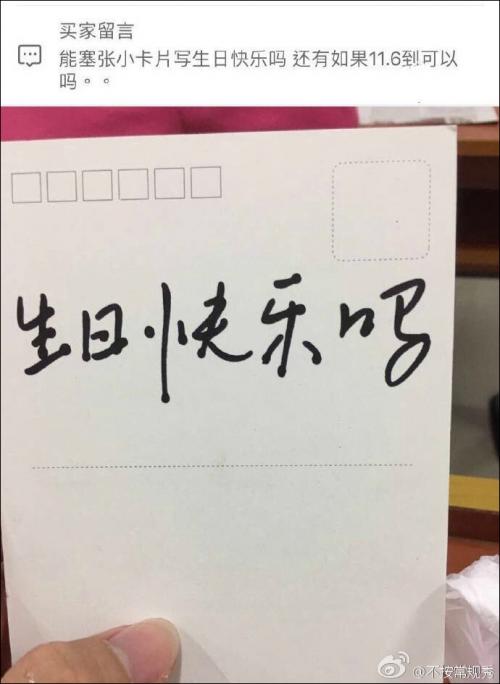 买家留言
能塞张小卡片写生日快乐吗 还有如果11.6到可以
吗。。
生日快乐吗
@不按常规秀